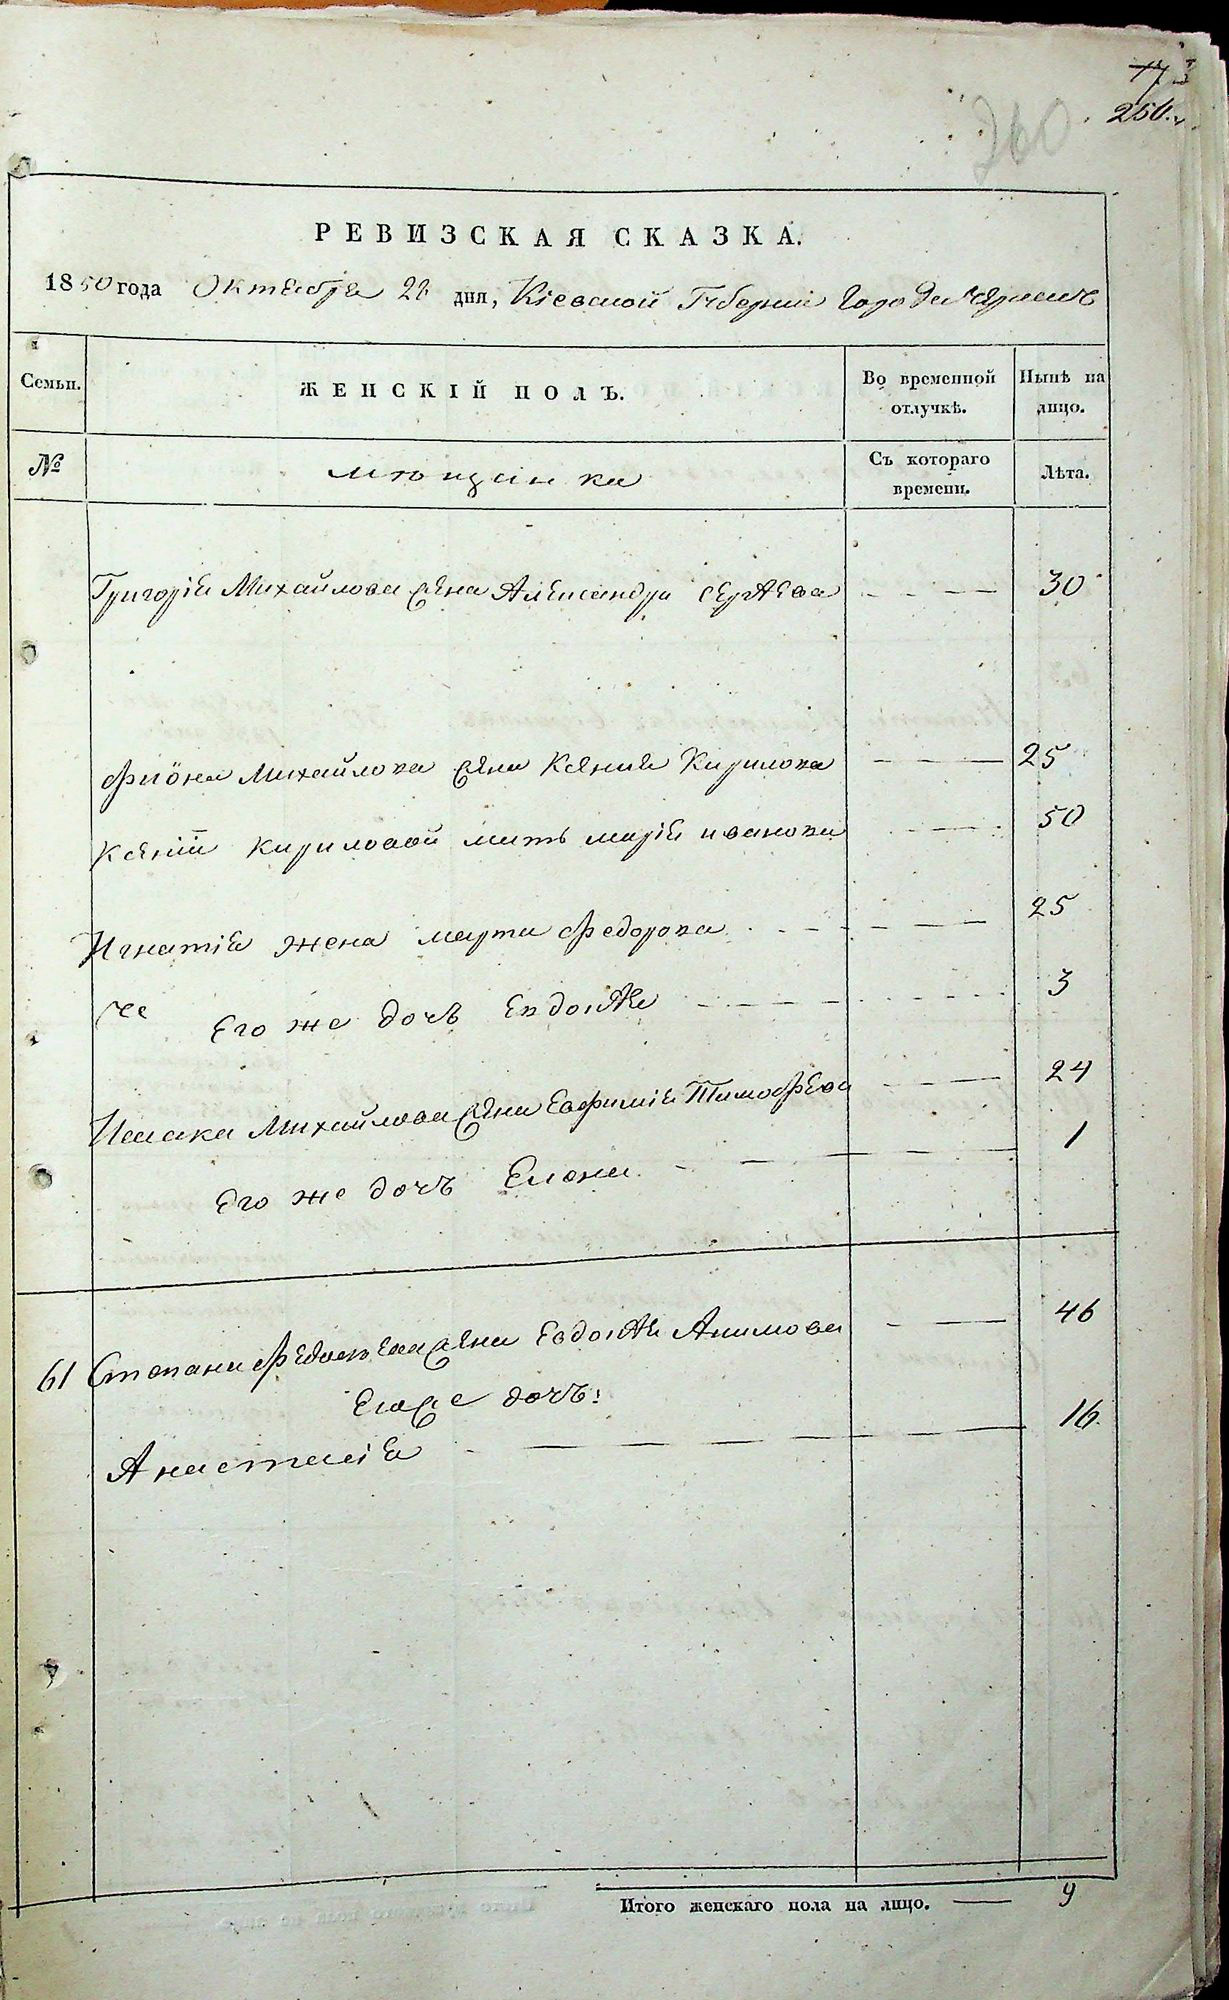 260
250.
РЕВИЗСКАЯ СКАЗКА.
1850 года Октября 22 дня, Кіевской Губерніи Города Черкасъ
Семьи. ЖЕНСКІЙ ПОЛЪ. Во временной отлучкѣ. Нынѣ на лицо.
№ мѣщанка Съ котораго времени. Лѣта.
Григорія Михайлова жена Александра Сергѣева 30
Фиіона Михайлова жена Ксенія Кирилова 25
Ксеніи Кириловой мать марія иванова 50
Игнатія жена марта Федорова 25
Его же дочь Евдокія 3
Исаака Михайлова жена Евфимія Тимофѣева 24
Его же дочь Елена 1
61 Степана Федосѣева жена Евдокія Акимова 46
Его же дочь:
Анастасія 16
Итого женскаго пола на лицо. 9